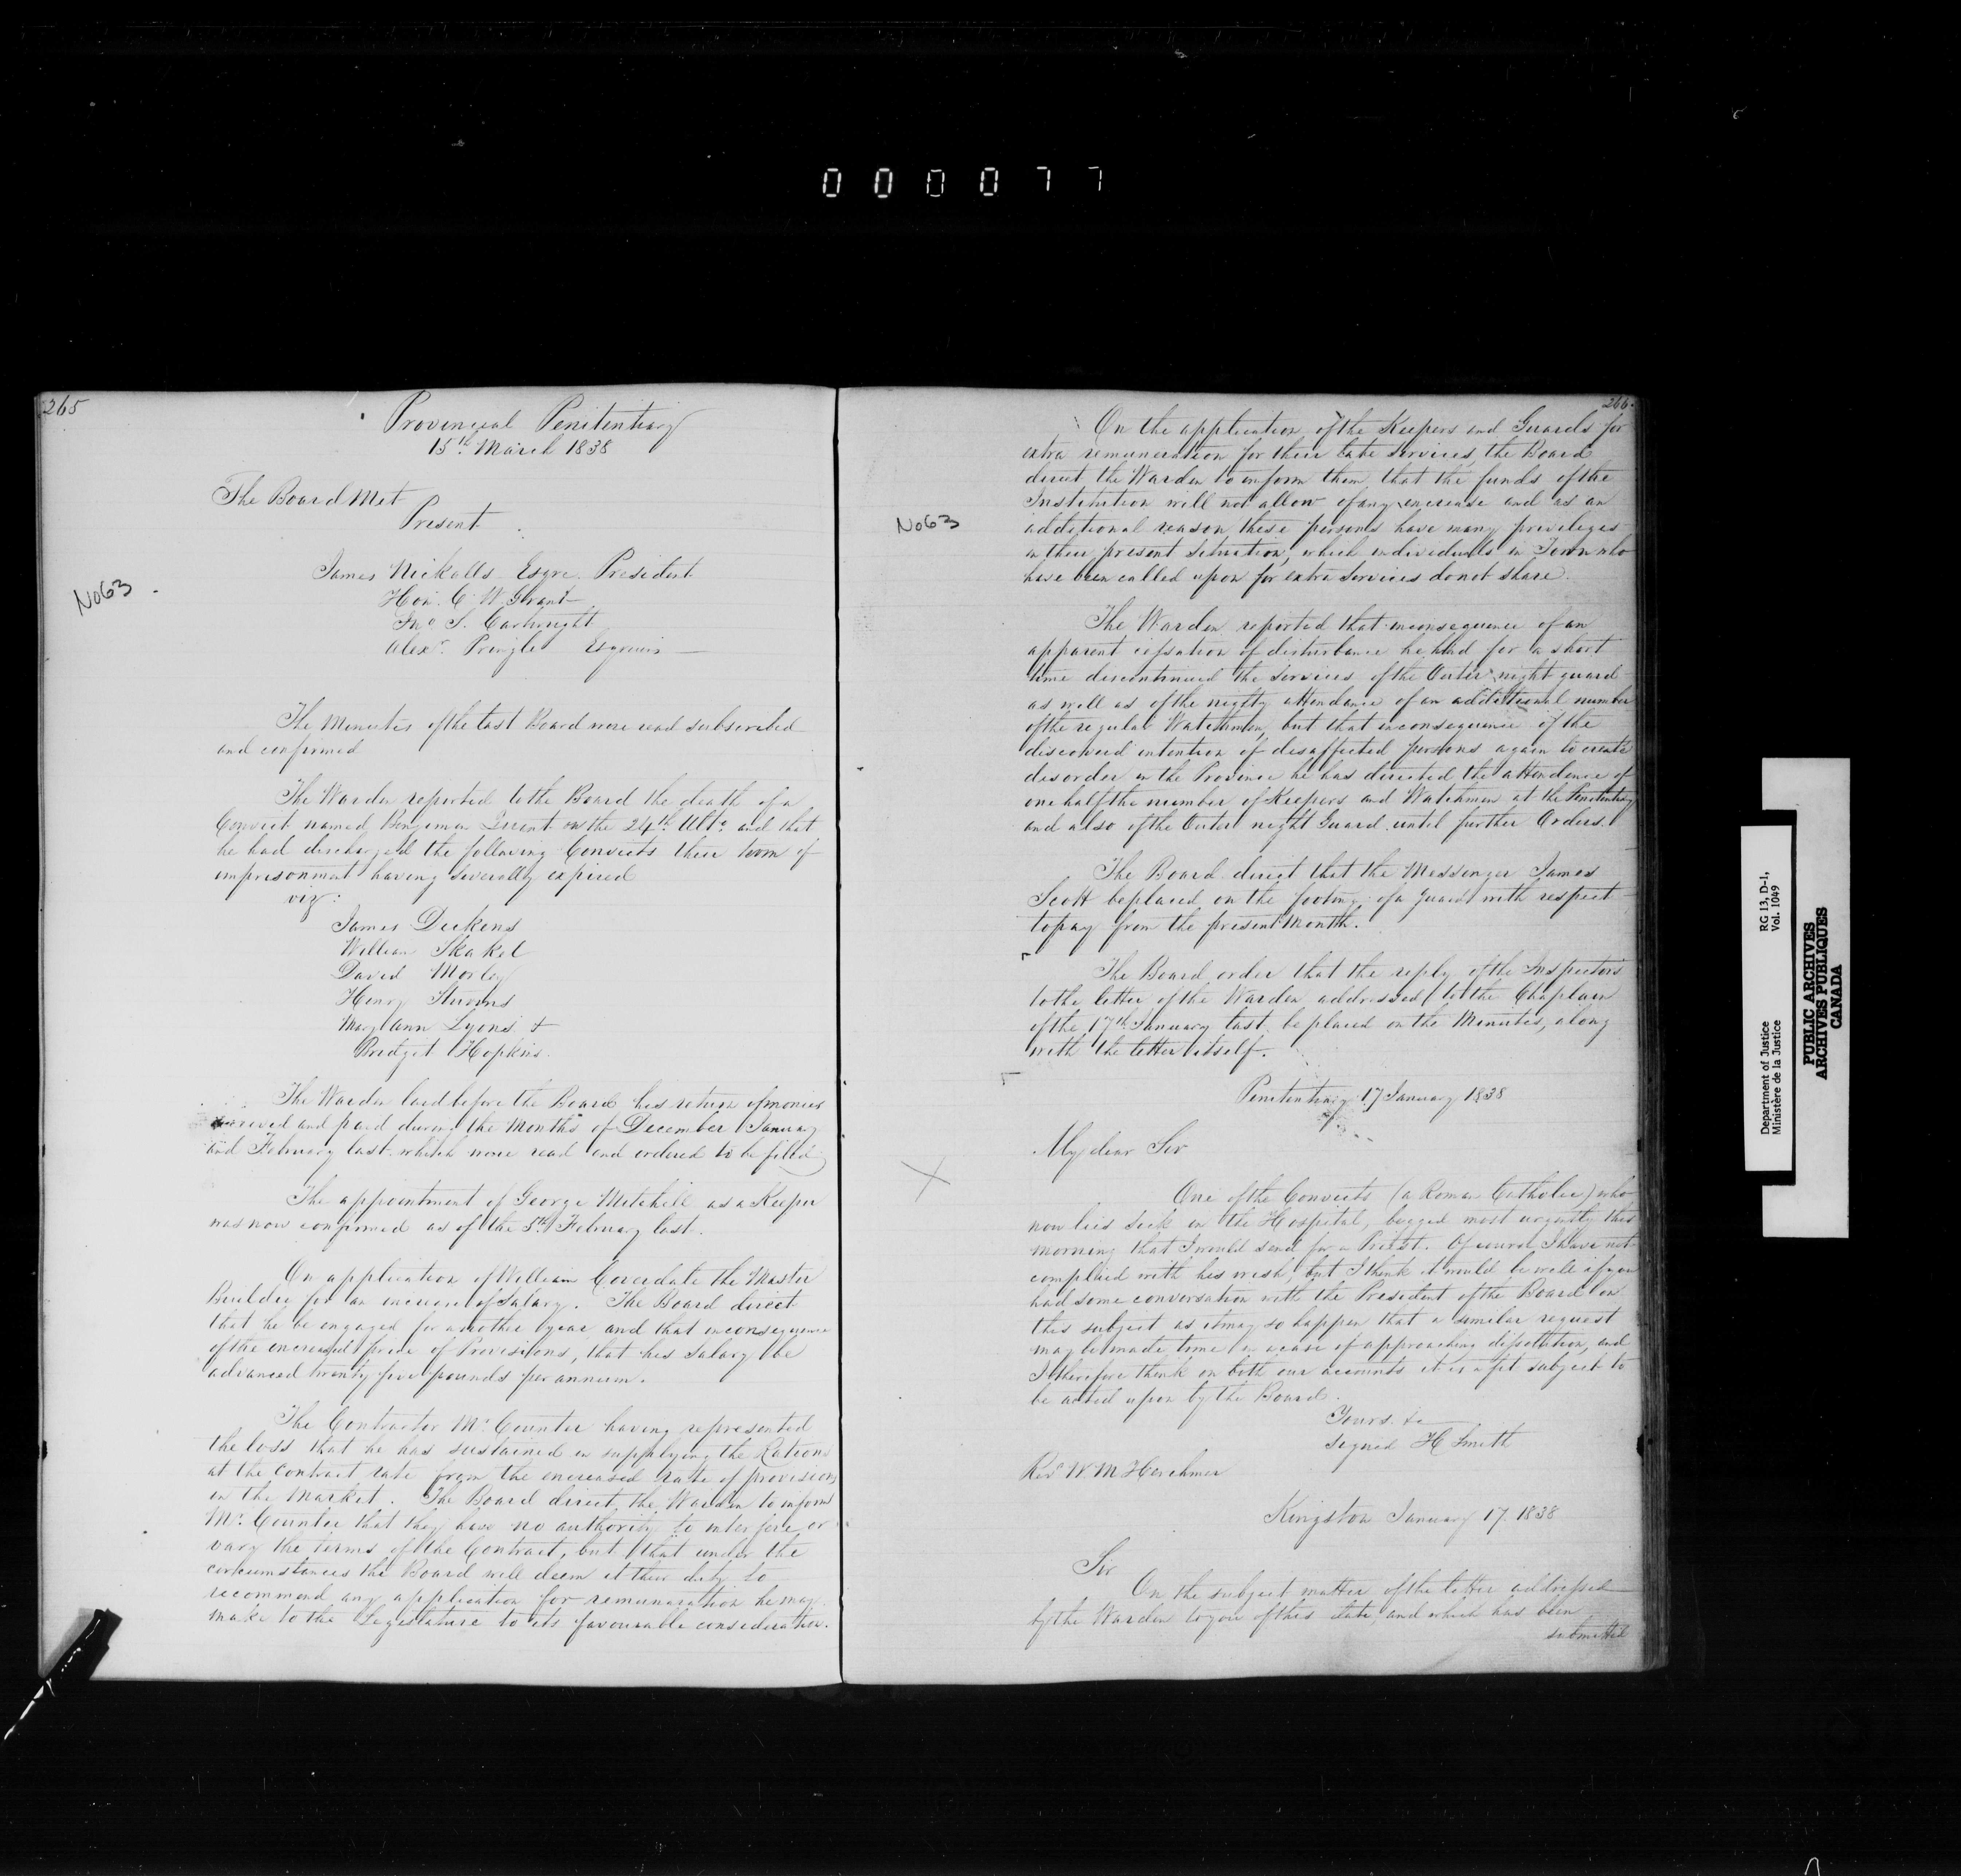 000077
265
Provincial Penitentiary
15th March 1838
The Board Met
Present
No63
James Nickalls Esqre. President
Hon. C. W. Grant
Jno S. Cartwright
Alexr. Pringle Esquires
The Minutes of the last Board were read subscribed
and confirmed
The Warden reported to the Board the death of a
Convict named Benjiman on the 24th Ulto. and that
he had discharged the following Convicts their term of
imprisonment having severally expired
viz:
James Dickens
William Skakel
David Morley
Henry
Mary Ann Lyons &
Bridget Hopkins.
The Warden laid before the Board his return of monies
received and paid during the Months of December January
and February last which were read and ordered to be filed
The appointment of George Mitchell as a Keeper
was now confirmed as of the 5th February last.
On application of William Coverdale the Master
Builder for an increase of Salary. The Board direct
that he be engaged for another year and that inconsequence
of the increased price of Provisions, that his Salary be
advanced twenty five pounds per annum.
The Contractor Mr. Counter having represented
the loss that he has sustained in supplying the Rations
at the Contract rate from the increased rate of provisions
in the Market. The Board direct the Warden to inform
Mr. Counter that they have no authority to interfere or
vary the terms of the Contract, but that under the
circumstances the Board will deem it their duty to
recommend any application for remuneration he may
make to the Legislature to its favourable consideration.
266.
On the application of the Keepers and Guards for
extra remuneration for their late services, the Board
direct the Warden to inform them that the funds of the
Institution will not allow of any increase and as an
No63
additional reason these persons have many privileges
in their present Situation, which individuals in Town who
have been called upon for extra Services do not share.
The Warden reported that inconsequence of an
apparent cessation of disturbance he had for a short
time discontinued the Services of the Outer night guard
as well as of the nightly attendance of an additional number
of the regular Watchmen, but that inconsequence of the
discovered intention of desaffected persons again to create
disorder in the Province he has directed the attendance of
one half the number of Keepers and Watchmen at the Penitentiary
and also of the Outer night Guard until further Orders.
The Board direct that the Messenger James
Scott be placed on the footing of a Guard with respect
to pay from the present Month.
The Board order that the reply of the Inspectors
to the letter of the Warden addressed to the Chaplain
of the 17th January last be placed on the Minutes, along
with the letter itself.
Penitentiary 17 January 1838
My dear Sir
One of the Convicts (a Roman Catholic) who
now lies Sick in the Hospital, begged most urgently this
morning that I would send for a Priest. Of course I have not
complied with his wish, but I think it would be well if you
had some conversation with the President of the Board on
this subject as it may so happen that a similar request
may be made time in a case of approaching dissolution, and
I therefore think on both our accounts it is a fit subject to
be acted upon by the Board.
Yours &c
Signed H Smith
Revd W. M Herchmer
Kingston January 17. 1838
Sir
On the subject matter of the letter addressed
by the Warden to you of this date, and which has been
submitted
Department of Justice
Ministère de la Justice
RG 13, D-1,
Vol. 1049
PUBLIC ARCHIVES
ARCHIVES PUBLIQUES
CANADA